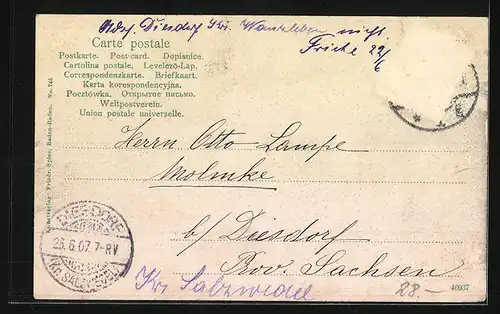 Adr. Diesdorf Kr. Wanzleben nicht
Fricke 22/6
Carte postale
Postkarte. Post-card. Dopisnice.
Cartolina postale. Levelező-Lap.
Correspondenzkarte. Briefkaart.
Karta korespondencyjna.
Pocztówka. Открытое письмо.
Weltpostverein.
Union postale universelle.
Kunstverlag: Friedr. Spies, Baden-Baden. No. 745
Herrn Otto Lampe
Molmke
b/ Diesdorf
Prov. Sachsen
Kr. Salzwedel
DIESDORF
23.6.07. 7-8V
(KR. SALZWEDEL)
28.-
46937